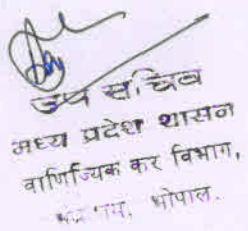 उप सचिव
मध्य प्रदेश शासन
वाणिज्यिक कर विभाग,
भोपाल.